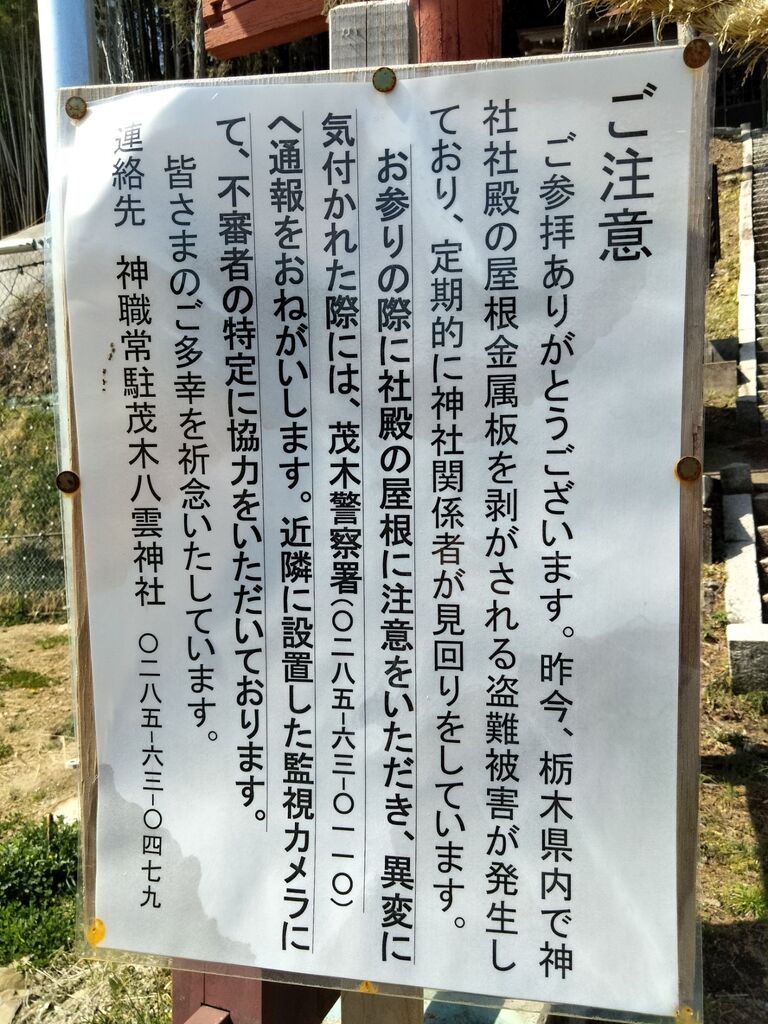 ご注意
ご参拝ありがとうございます。昨今、栃木県内で神
社社殿の屋根金属板を剥がされる盗難被害が発生し
ており、定期的に神社関係者が見回りをしています。
お参りの際に社殿の屋根に注意をいただき、異変に
気付かれた際には、茂木警察署(〇二八五-六三-〇一一〇)
へ通報をおねがいします。近隣に設置した監視カメラに
て、不審者の特定に協力をいただいております。
皆さまのご多幸を祈念いたしています。
連絡先　神職常駐茂木八雲神社　〇二八五-六三-〇四七九